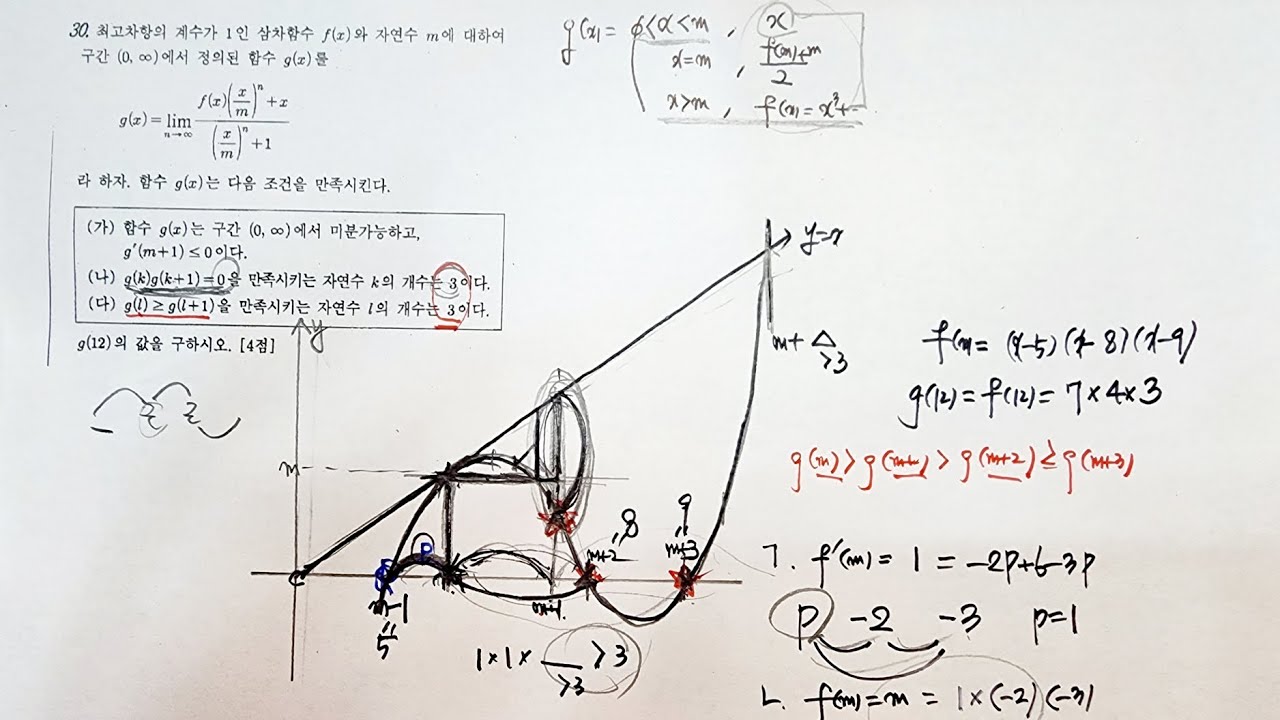 30. 최고차항의 계수가 1인 삼차함수 f(x)와 자연수 m에 대하여
구간 (0, ∞)에서 정의된 함수 g(x)를
g(x)=lim n→∞ (f(x)(x/m)^n+x)/((x/m)^n+1)
라 하자. 함수 g(x)는 다음 조건을 만족시킨다.
(가) 함수 g(x)는 구간 (0, ∞)에서 미분가능하고,
g′(m+1)≤0이다.
(나) g(k)g(k+1)=0을 만족시키는 자연수 k의 개수는 3이다.
(다) g(l)≥g(l+1)을 만족시키는 자연수 l의 개수는 3이다.
g(12)의 값을 구하시오. [4점]
g(x)= 0<x<m , x
x=m , (f(m)+m)/2
x>m , f(x)=x³+--
y
y=x
m
m+△
>3
P
m-1
5
m+1.
m+2 8
m+3 9
1×1× __ >3
>3
f(x)= (x-5)(x-8)(x-9)
g(12)=f(12)= 7×4×3
g(m)>g(m+1)>g(m+2)≤g(m+3)
ㄱ. f′(m)= 1 = -2p+6-3p
P -2 -3 p=1
ㄴ. f(m)=m = 1×(-2)(-3)